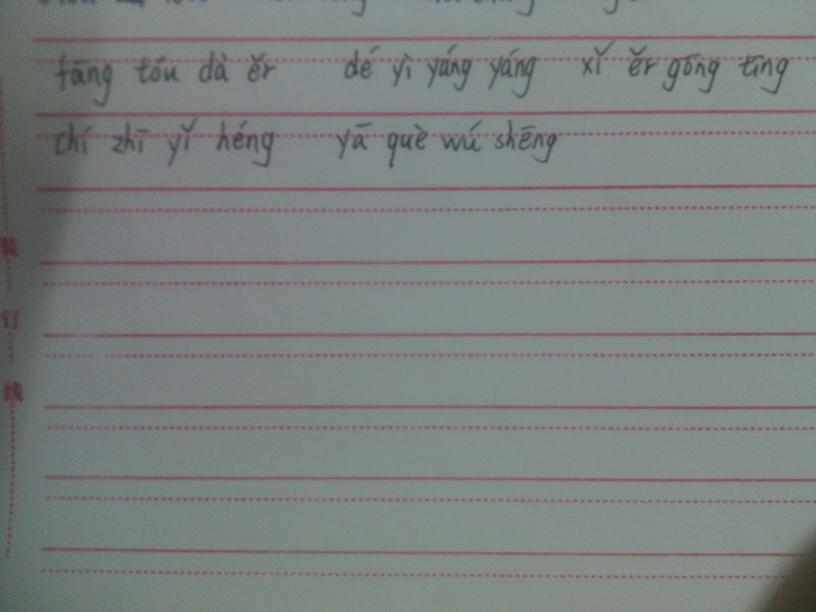 fāng tóu dà ěr dé yì yáng yáng xǐ ěr gōng tīng
chí zhī yǐ héng yā què wú shēng
装
订
线